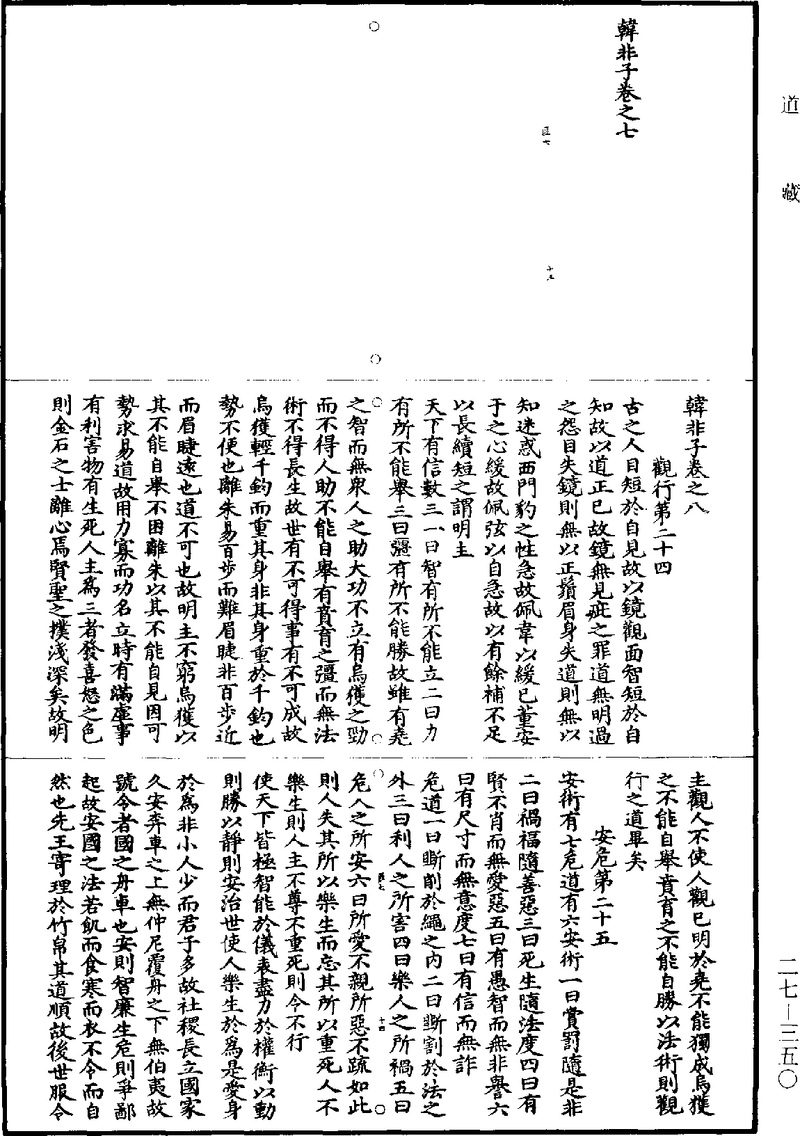 道藏
二七—三五〇
韓非子卷之七
韓非子卷之八
觀行第二十四
古之人目短於自見故以鏡觀面智短於自
知故以道正己故鏡無見疵之罪道無明過
之怨目失鏡則無以正鬚眉身失道則無以
知迷惑西門豹之性急故佩韋以緩己董安
于之心緩故佩弦以自急故以有餘補不足
以長續短之謂明主
天下有信數三一曰智有所不能立二曰力
有所不能舉三曰彊有所不能勝故雖有堯
之智而無衆人之助大功不立有烏獲之勁
而不得人助不能自舉有賁育之彊而無法
術不得長生故世有不可得事有不可成故
烏獲輕千鈞而重其身非其身重於千鈞也
勢不便也離朱易百步而難眉睫非百步近
而眉睫遠也道不可也故明主不窮烏獲以
其不能自舉不困離朱以其不能自見因可
勢求易道故用力寡而功名立時有滿虛事
有利害物有生死人主為三者發喜怒之色
則金石之士離心焉賢聖之撲淺深矣故明
主觀人不使人觀己明於堯不能獨成烏獲
之不能自舉賁育之不能自勝以法術則觀
行之道畢矣
安危第二十五
安術有七危道有六安術一曰賞罰隨是非
二曰禍福隨善惡三曰死生隨法度四曰有
賢不肖而無愛惡五曰有愚智而無非譽六
曰有尺寸而無意度七曰有信而無詐
危道一曰斷削於繩之內二曰斷割於法之
外三曰利人之所害四曰樂人之所禍五曰
危人之所安六曰所愛不親所惡不疏如此
則人失其所以樂生而忘其所以重死人不
樂生則人主不尊不重死則令不行
使天下皆極智能於儀表盡力於權衡以動
則勝以靜則安治世使人樂生於為是愛身
於為非小人少而君子多故社稷長立國家
久安奔車之上無仲尼覆舟之下無伯夷故
號令者國之舟車也安則智廉生危則爭鄙
起故安國之法若飢而食寒而衣不令而自
然也先王寄理於竹帛其道順故後世服令